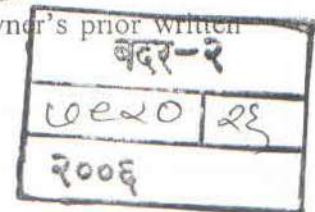 ner's prior written
बदर-२
७९२० २६
२००६